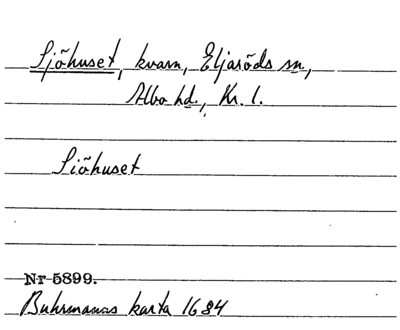 Sjöhuset, kvarn, Eljaröds sn,
Albo hd., Kr. l.
Siöhuset
Nr 5899.
Buhrmans karta 1684